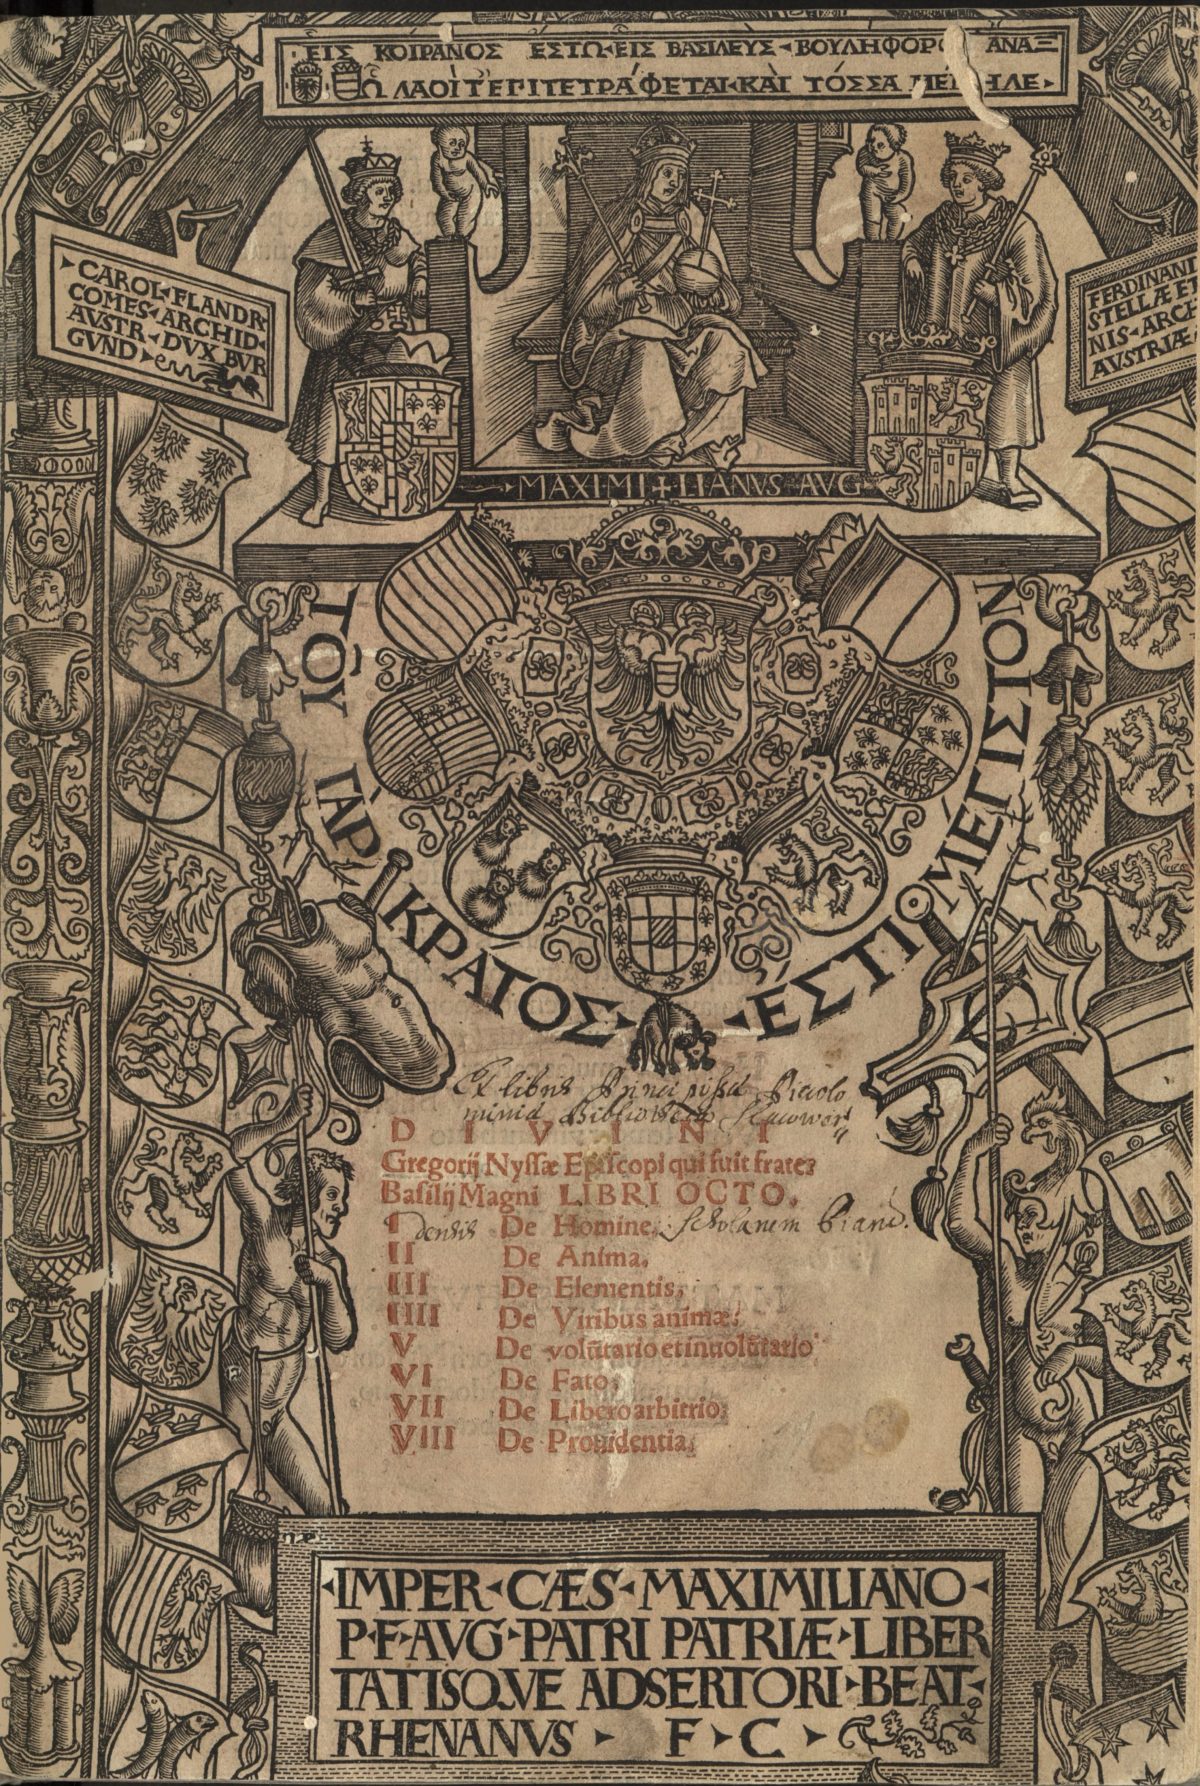 ΕΙΣ ΚΟΙΡΑΝΟΣ ΕΣΤΩ ΕΙΣ ΒΑΣΙΛΕΥΣ ΒΟΥΛΗΦΟΡΟ ΑΝΑΞ
Ω ΛΑΟΙ Τ ΕΠΙΤΕΤΡΑΦΕΤΑΙ ΚΑΙ ΤΟΣΣΑ ΜΕΜΗΛΕ
CAROL FLANDR
COMES ARCHID
AVSTR DVX BVR
GVND
FERDINAND
STELLÆ ET
NIS ARCH
AVSTRIÆ
MAXIMILIANVS AVG
ΤΟΥ ΓΑΡ ΚΡΑΤΟΣ ΕΣΤΙ ΜΕΓΙΣΙΟΝ
Ex libris Principissæ Piccolo
mineæ Bibliothecæ
DIVINI
Gregorij Nyssæ Episcopi qui fuit frater
Basilij Magni LIBRI OCTO.
I De Homine.
II De Anima.
III De Elementis.
IIII De Viribus animæ.
V De volūtario et inuolūtario
VI De Fato.
VII De Libero arbitrio.
VIII De Prouidentia.
IMPER CÆS MAXIMILIANO
P F AVG PATRI PATRIÆ LIBER
TATISQVE ADSERTORI BEAT
RHENANVS F C